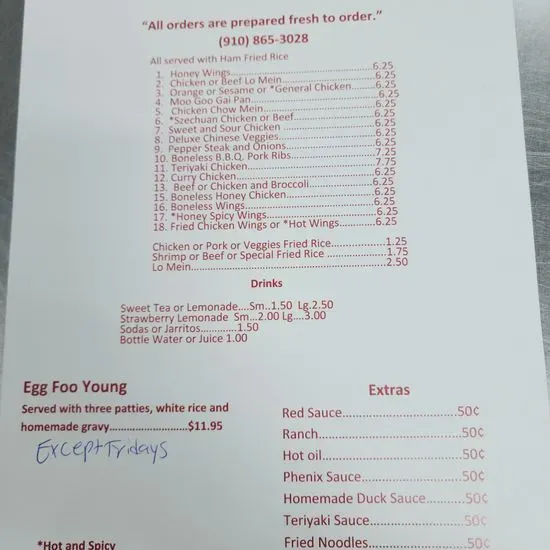 “All orders are prepared fresh to order.”
(910) 865-3028
All served with Ham Fried Rice
1. Honey Wings..............................6.25
2. Chicken or Beef Lo Mein.....................6.25
3. Orange or Sesame or *General Chicken............6.25
4. Moo Goo Gai Pan..............................6.25
5. Chicken Chow Mein............................6.25
6. *Szechuan Chicken or Beef....................6.25
7. Sweet and Sour Chicken.......................6.25
8. Deluxe Chinese Veggies.......................6.25
9. Pepper Steak and Onions......................6.25
10. Boneless B.B.Q. Pork Ribs...................7.25
11. Teriyaki Chicken............................7.75
12. Curry Chicken...............................6.25
13. Beef or Chicken and Broccoli................6.25
15. Boneless Honey Chicken......................6.25
16. Boneless Wings..............................6.25
17. *Honey Spicy Wings..........................6.25
18. Fried Chicken Wings or *Hot Wings...........6.25
Chicken or Pork or Veggies Fried Rice...............1.25
Shrimp or Beef or Special Fried Rice ...............1.75
Lo Mein.............................................2.50
Drinks
Sweet Tea or Lemonade....Sm..1.50 Lg.2.50
Strawberry Lemonade Sm...2.00 Lg....3.00
Sodas or Jarritos.............1.50
Bottle Water or Juice 1.00
Egg Foo Young
Served with three patties, white rice and
homemade gravy..........................$11.95
Except Fridays
*Hot and Spicy
Extras
Red Sauce............................50¢
Ranch................................50¢
Hot oil..............................50¢
Phenix Sauce.........................50¢
Homemade Duck Sauce..................50¢
Teriyaki Sauce.......................50¢
Fried Noodles........................50¢